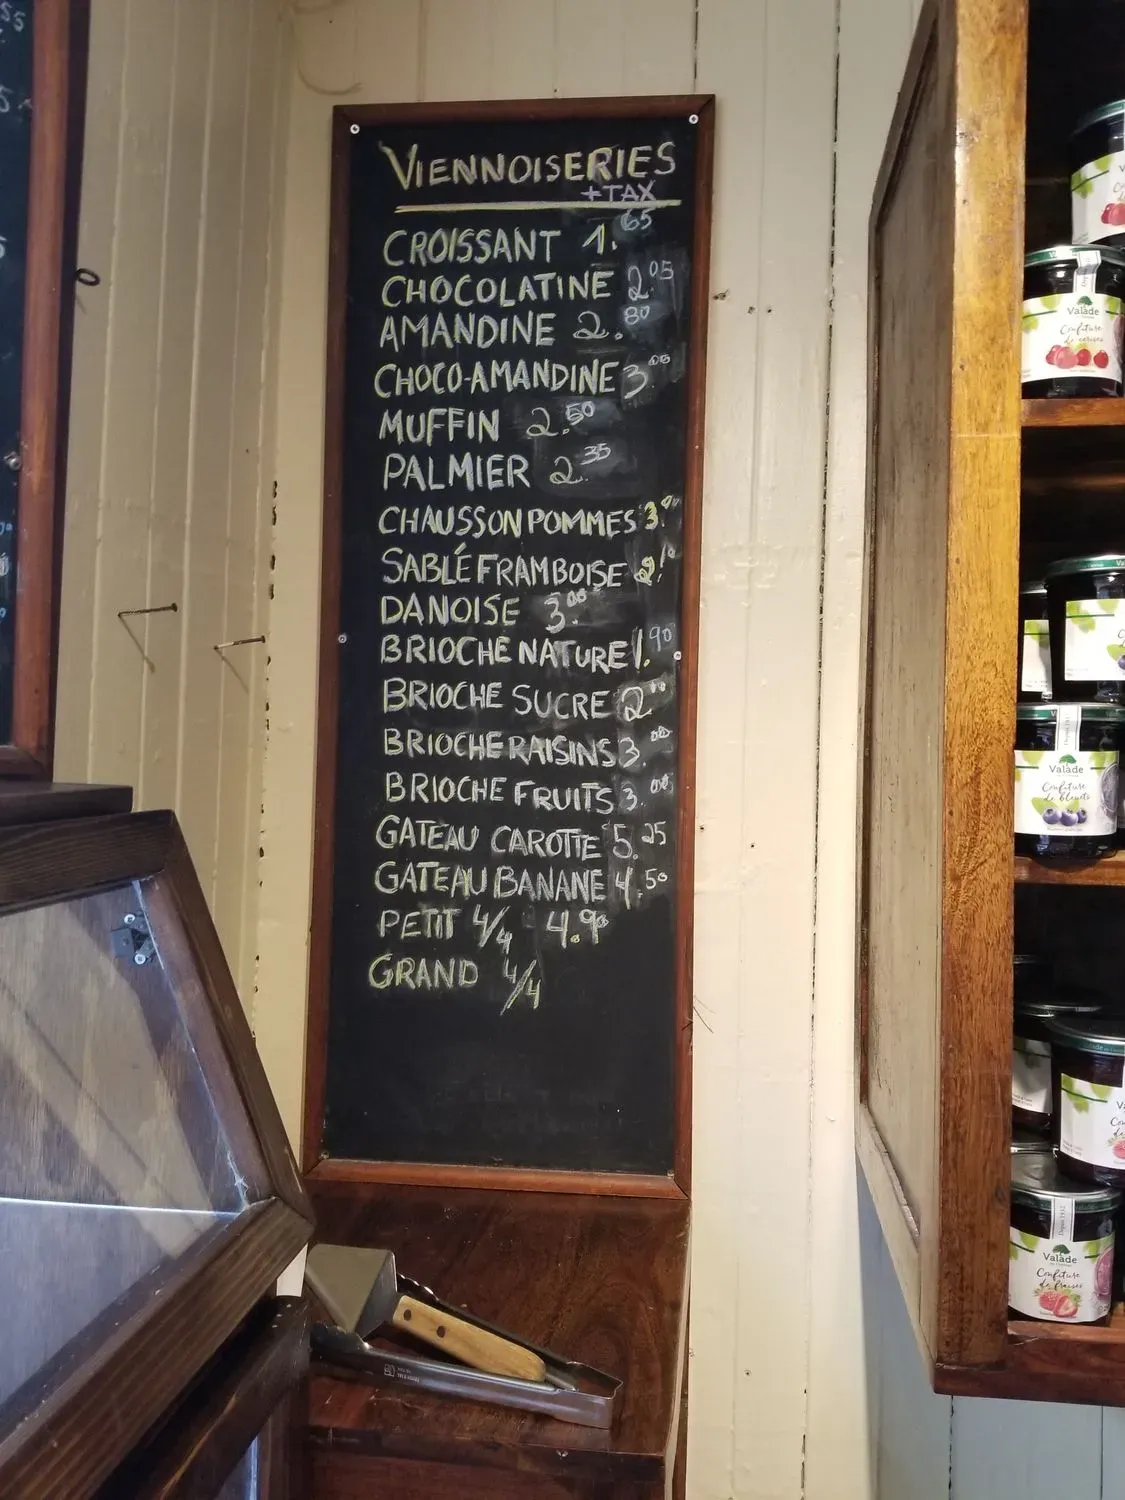 VIENNOISERIES
+TAX
CROISSANT 1.65
CHOCOLATINE 2.05
AMANDINE 2.80
CHOCO-AMANDINE 3.00
MUFFIN 2.50
PALMIER 2.35
CHAUSSON POMMES 3.00
SABLÉ FRAMBOISE
DANOISE 3.00
BRIOCHE NATURE 1.90
BRIOCHE SUCRE 2
BRIOCHE RAISINS 3.00
BRIOCHE FRUITS 3.00
GATEAU CAROTTE 5.25
GATEAU BANANE 4.50
PETIT 4/4 4.90
GRAND 4/4
Valade
Confiture
de cerises
Valade
Confiture
de bleuets
Valade
Confiture
de fraises